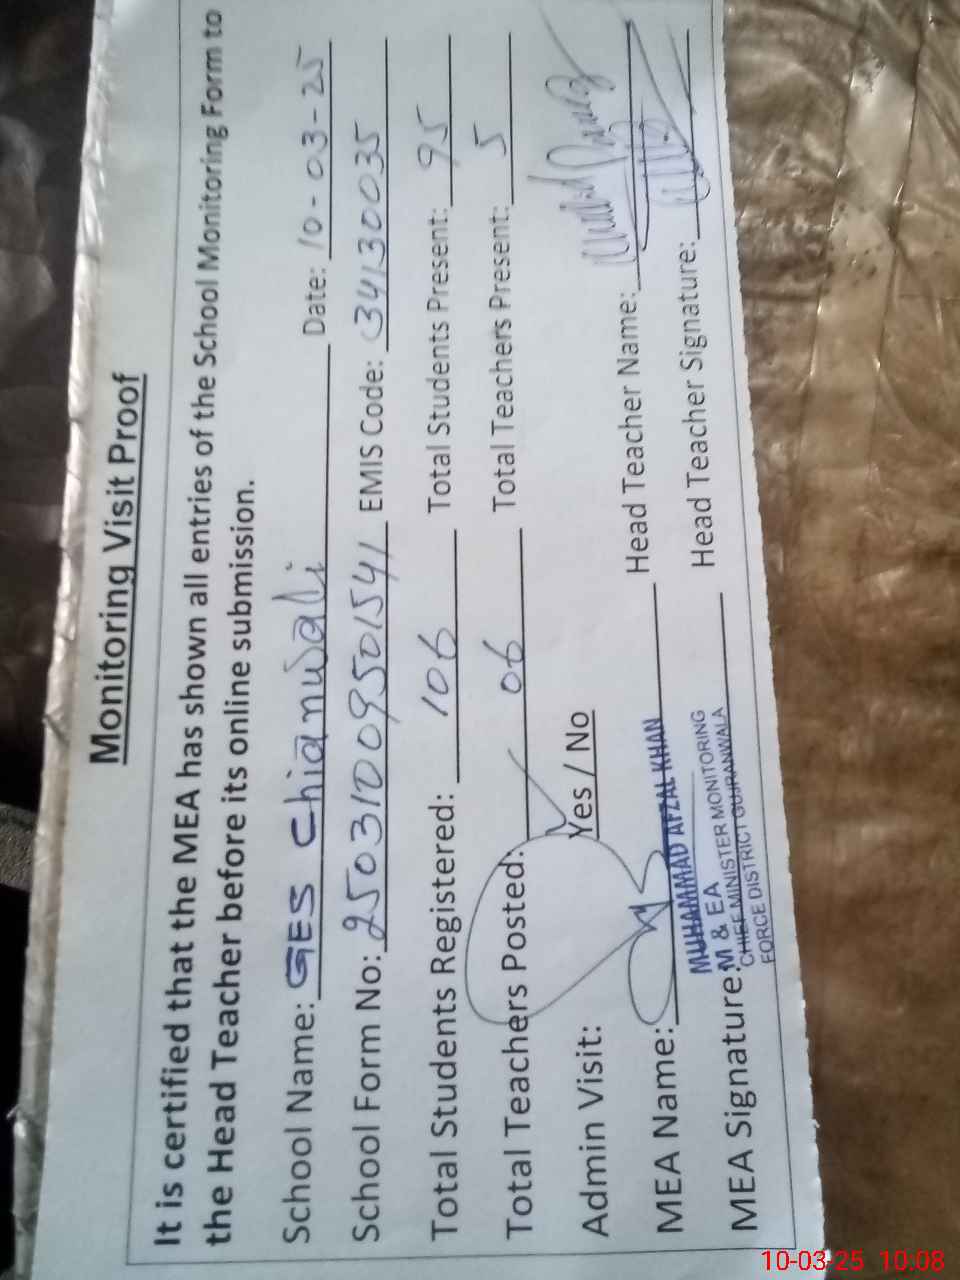 Monitoring Visit Proof
It is certified that the MEA has shown all entries of the School Monitoring Form to
the Head Teacher before its online submission.
School Name: GES Chianwali Date: 10-03-25
School Form No: 25031009501541 EMIS Code: 34130035
Total Students Registered: 106 Total Students Present: 95
Total Teachers Posted: 06 Total Teachers Present: 5
Admin Visit: Yes / No
MEA Name: Head Teacher Name:
MUHAMMAD AFZAL KHAN
MEA Signature: Head Teacher Signature:
M & EA
CHIEF MINISTER MONITORING
FORCE DISTRICT GUJRANWALA
10-03-25 10:08